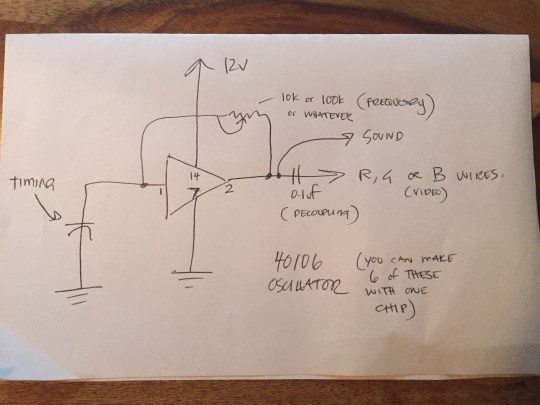 12V
10K OR 100K (FREQUENCY)
OR WHATEVER
SOUND
TIMING
1
14
7
2
R, G OR B WIRES.
(VIDEO)
0.1uF
(DECOUPLING)
40106
OSCILLATOR
(YOU CAN MAKE
6 OF THESE
WITH ONE
CHIP)